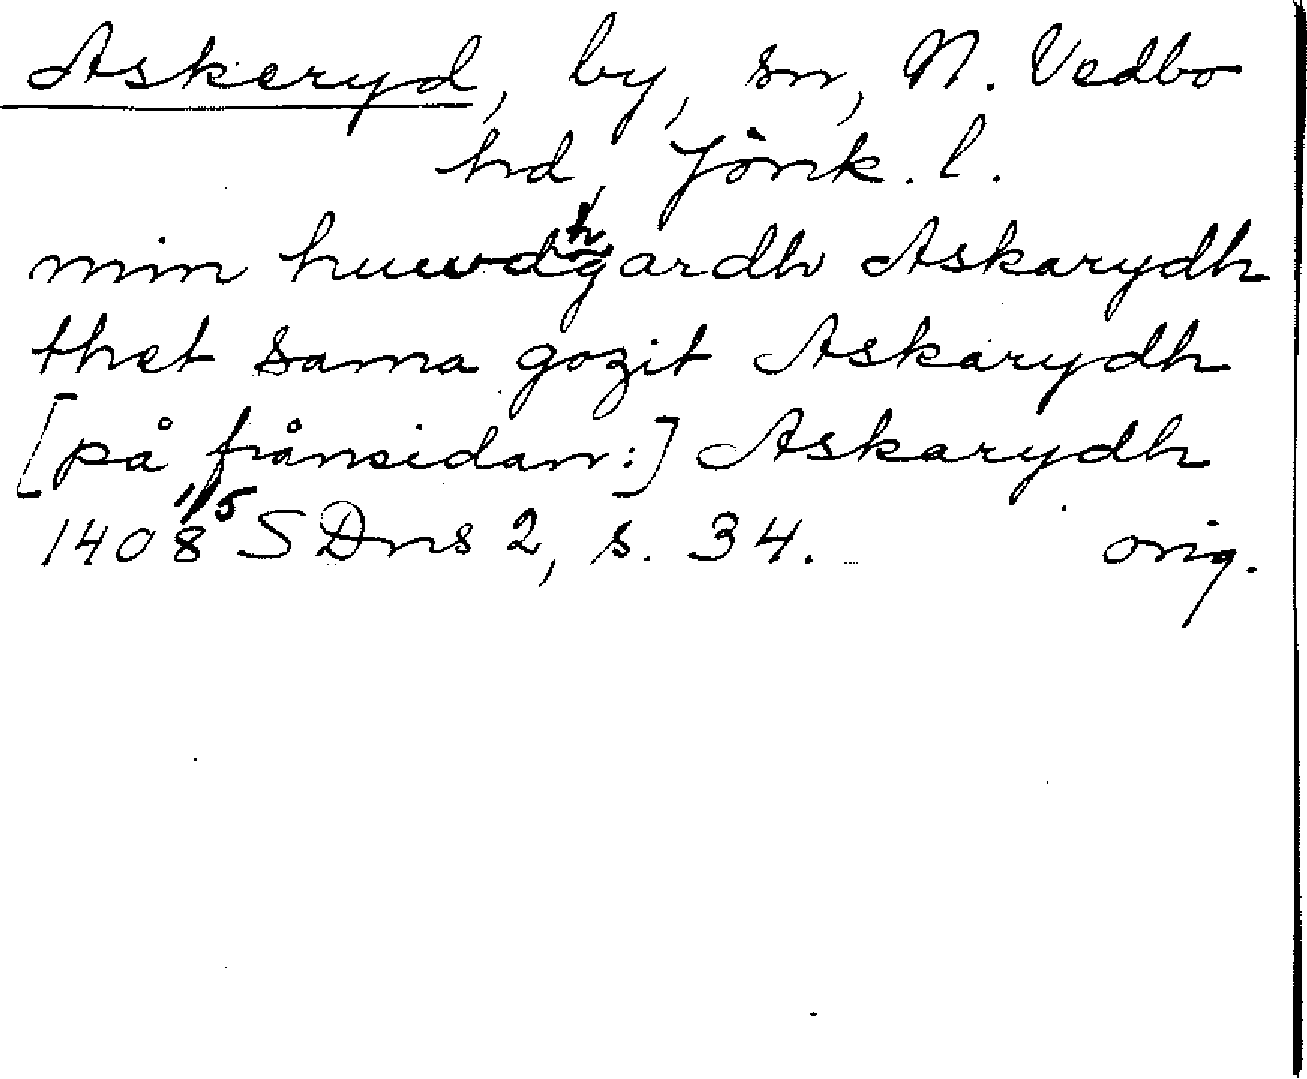 Askeryd, by, sn, N. Vedbo
hd, Jönk. l.
min huwdhgardh Askarydh
thet sama gozit Askarydh
[på frånsidan:] Askarydh
1408 1/5 SDns 2, s. 34. orig.